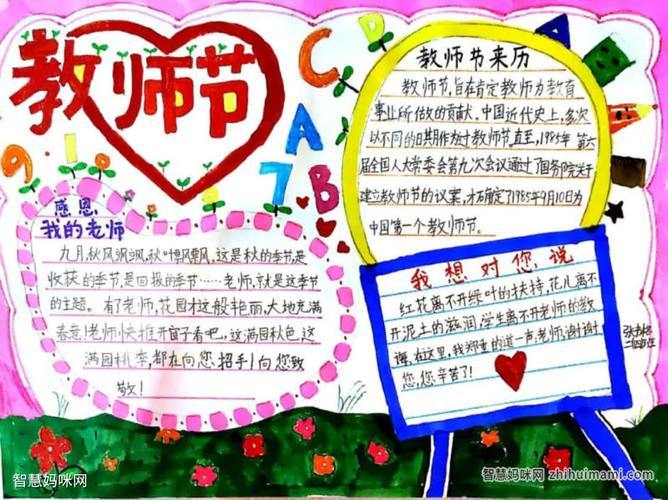 教师节
C D A
A
B
9 1 0 7
感恩
我的老师
九月,秋风飒飒,秋叶飘飘,这是秋的季节,是
收获的季节,是回报的季节……老师,就是这季节
的主题。有了老师,花园才这般艳丽,大地充满
春意!老师快推开窗子看吧,这满园秋色,这
满园桃李,都在向您招手!向您致
敬!
教师节来历
教师节,旨在肯定教师为教育
事业所做的贡献。中国近代史上,多次
以不同的日期作为过教师节。直至,1985年第六
届全国人大常委会第九次会议通过了国务院关于
建立教师节的议案,才石角定了1985年9月10日为
中国第一个教师节。
我想对您说
红花离不开绿叶的扶持,花儿离不
开泥土的滋润,学生离不开老师的教
诲。在这里,我郑重的道一声:老师,谢谢
您,您辛苦了!
智慧妈咪网
智慧妈咪网 zhihuimami.com